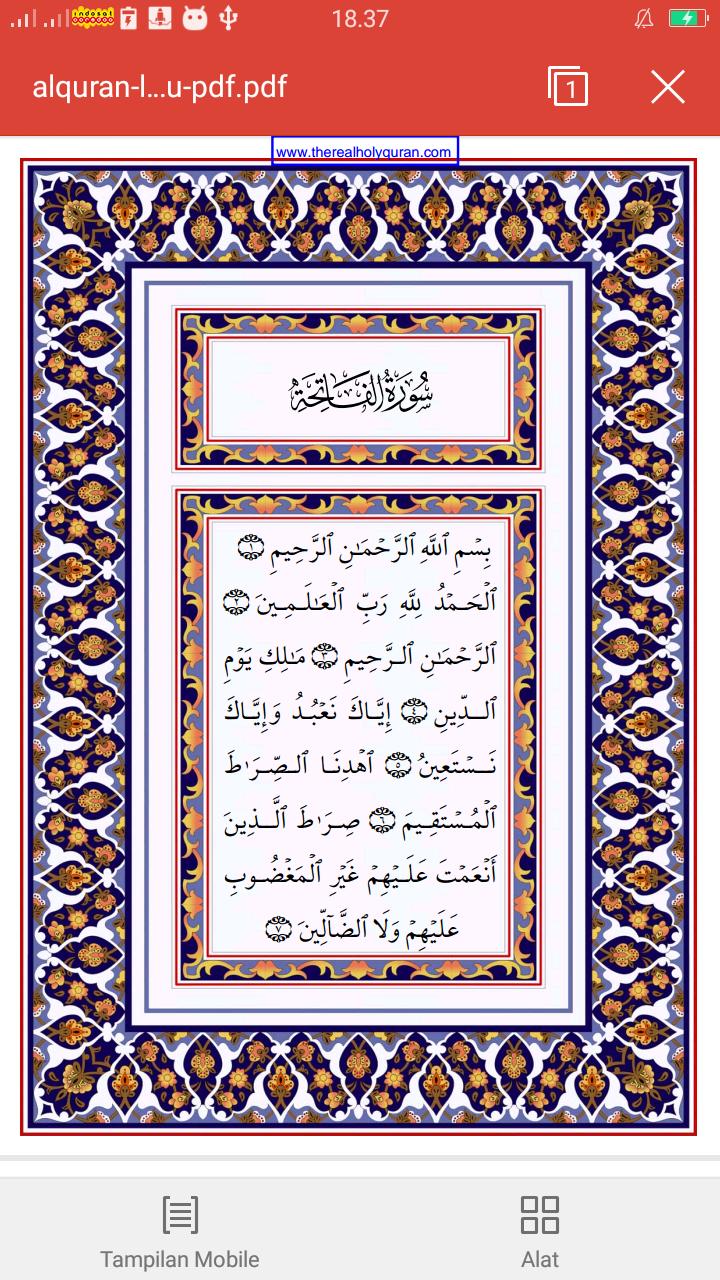 indosat
ooredoo
18.37
alquran-l...u-pdf.pdf
1
www.therealholyquran.com
سُورَةُ الفَاتِحَةِ
بِسۡمِ ٱللَّهِ ٱلرَّحۡمَـٰنِ ٱلرَّحِيمِ ١
ٱلۡحَمۡدُ لِلَّهِ رَبِّ ٱلۡعَـٰلَمِينَ ٢
ٱلرَّحۡمَـٰنِ ٱلرَّحِيمِ ٣ مَـٰلِكِ يَوۡمِ
ٱلدِّينِ ٤ إِيَّاكَ نَعۡبُدُ وَإِيَّاكَ
نَسۡتَعِينُ ٥ ٱهۡدِنَا ٱلصِّرَٰطَ
ٱلۡمُسۡتَقِيمَ ٦ صِرَٰطَ ٱلَّذِينَ
أَنۡعَمۡتَ عَلَيۡهِمۡ غَيۡرِ ٱلۡمَغۡضُوبِ
عَلَيۡهِمۡ وَلَا ٱلضَّآلِّينَ ٧
Tampilan Mobile
Alat